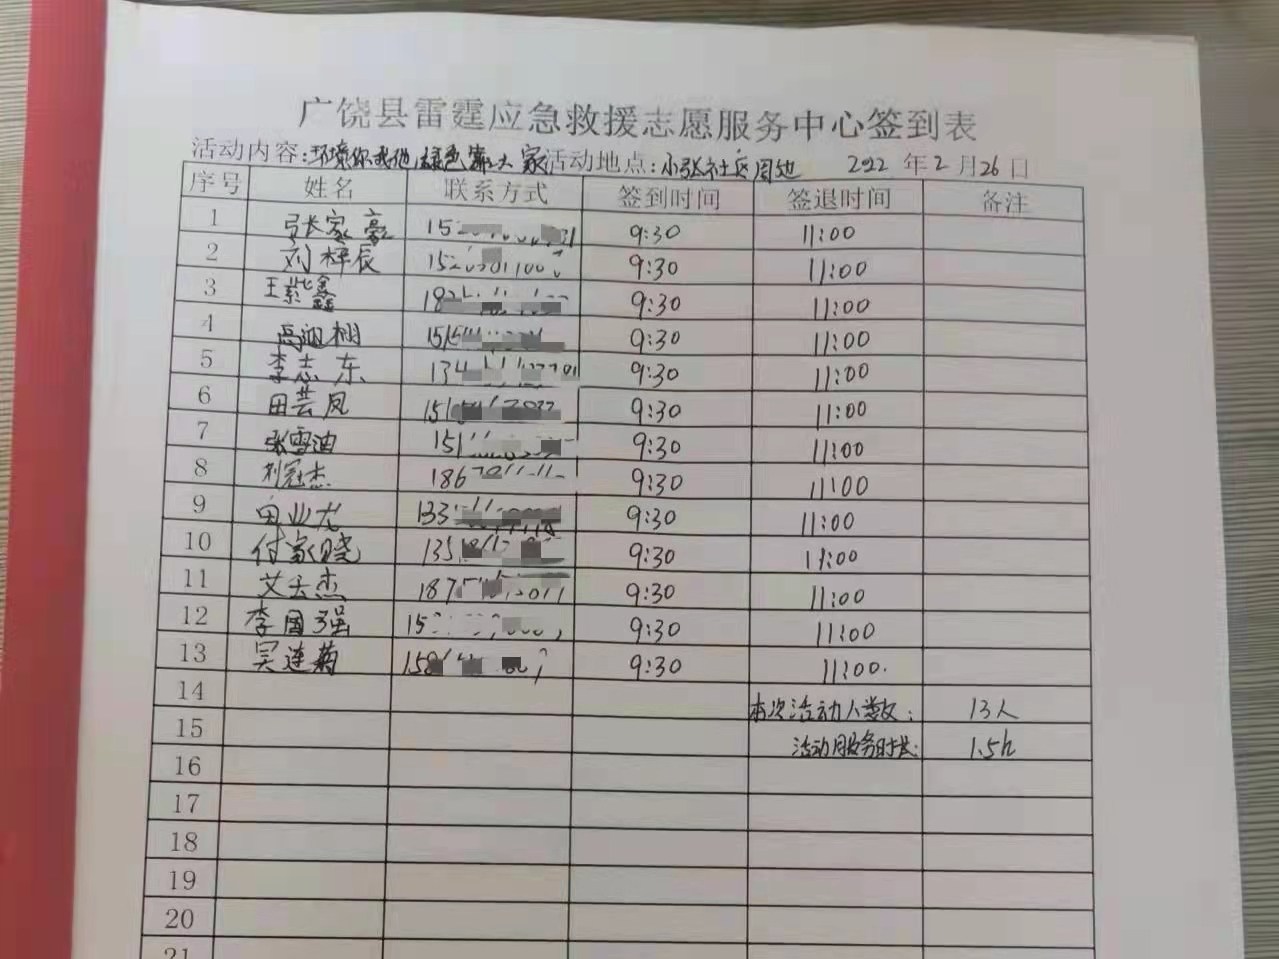 广饶县雷霆应急救援志愿服务中心签到表
活动内容:环境你我他,绿色靠大家 活动地点:小张社区周边 2022年2月26日
序号 姓名 联系方式 签到时间 签退时间 备注
1 张家豪 15 9:30 11:00
2 刘梓辰 152 9:30 11:00
3 王紫鑫 18 9:30 11:00
4 151 9:30 11:00
5 李志东 134 9:30 11:00
6 田芸凤 151 9:30 11:00
7 张雪迪 151 9:30 11:00
8 刘冠杰 186 9:30 11:00
9 133 9:30 11:00
10 付家晓 135 9:30 11:00
11 艾玉杰 187 9:30 11:00
12 李国强 15 9:30 11:00
13 吴连菊 158 9:30 11:00.
14 本次活动人数: 13人
15 活动服务时长: 1.5h
16
17
18
19
20
21